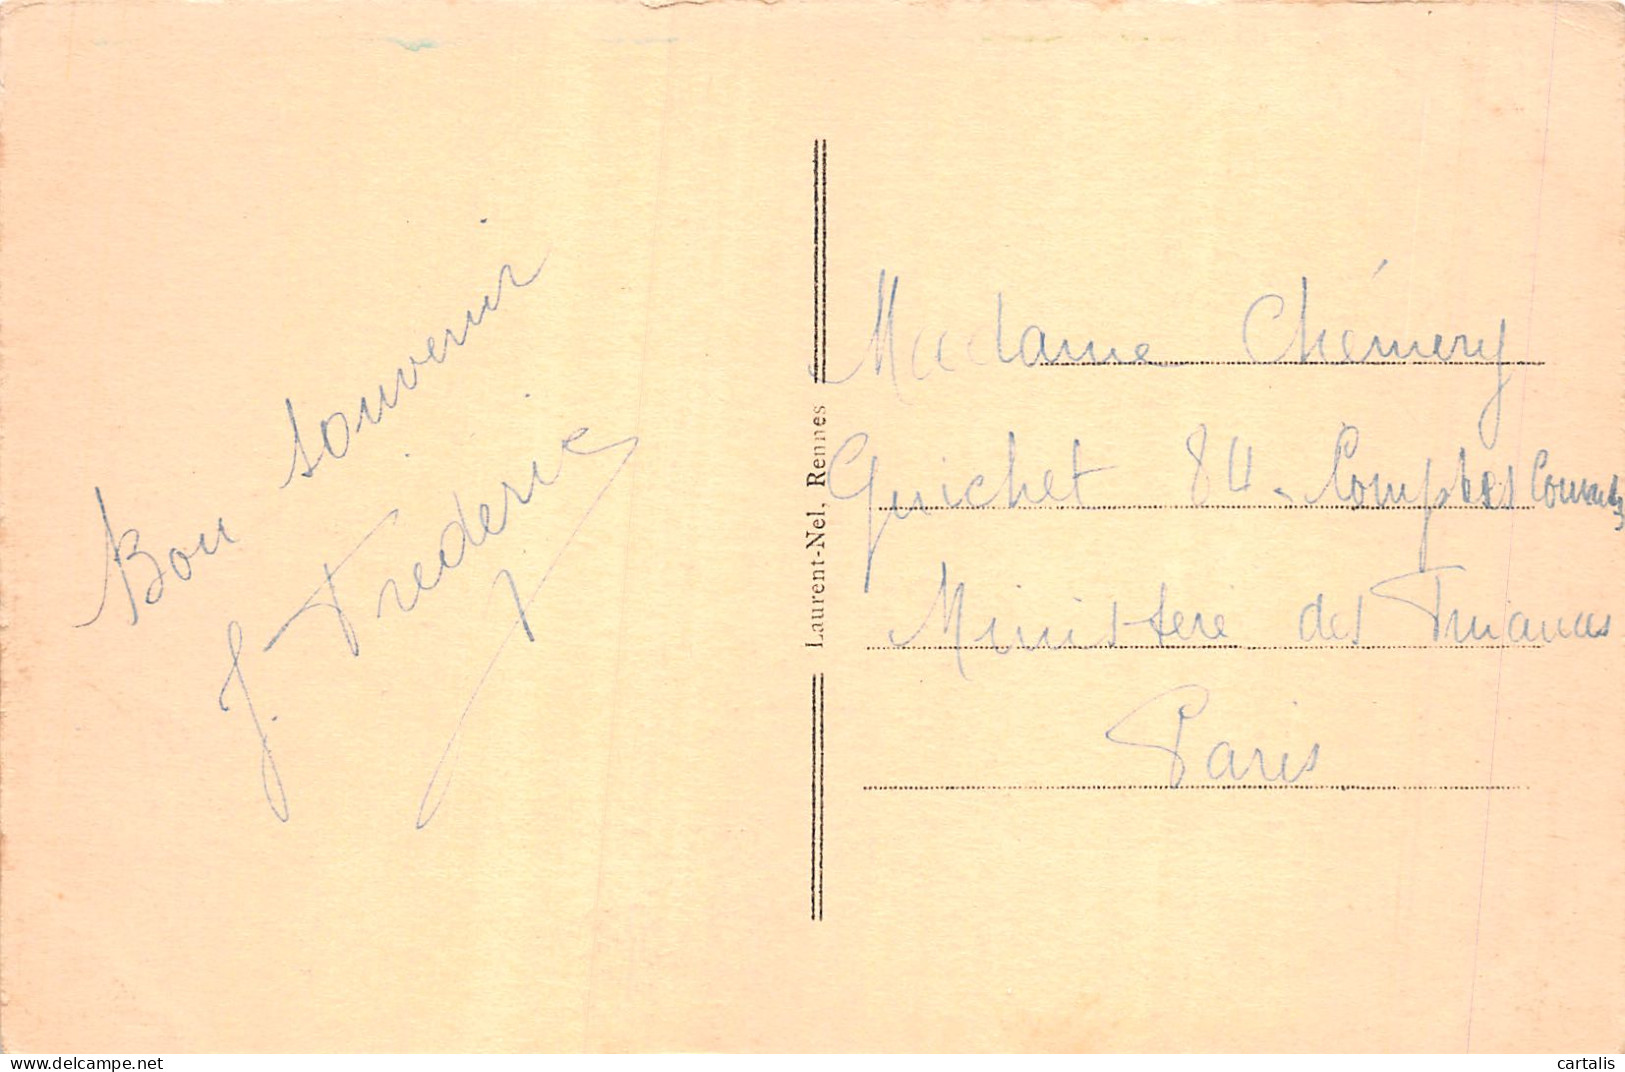 Bon souvenir
J. Frederic
Laurent-Nel, Rennes
Madame Chémery
Guichet 84 - Comptes Courants
Ministere des Finances
Paris
www.delcampe.net
cartalis